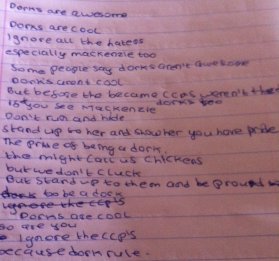 Dorks are awesome
Dorks are cool
Ignore all the haters
especially mackenzie too
Some people say dorks aren't awesome
Dorks arent cool
But before the became CCPs weren't they
dorks too
If you see Mackenzie
Don't run and hide
stand up to her and show her you have pride
The pride of being a dork.
the might call us chickens
but we don't cluck
But stand up to them and be proud
to be a dork
Ignore the CCP's
Dorks are cool
so are you
Ignore the CCP's
because dorks rule.